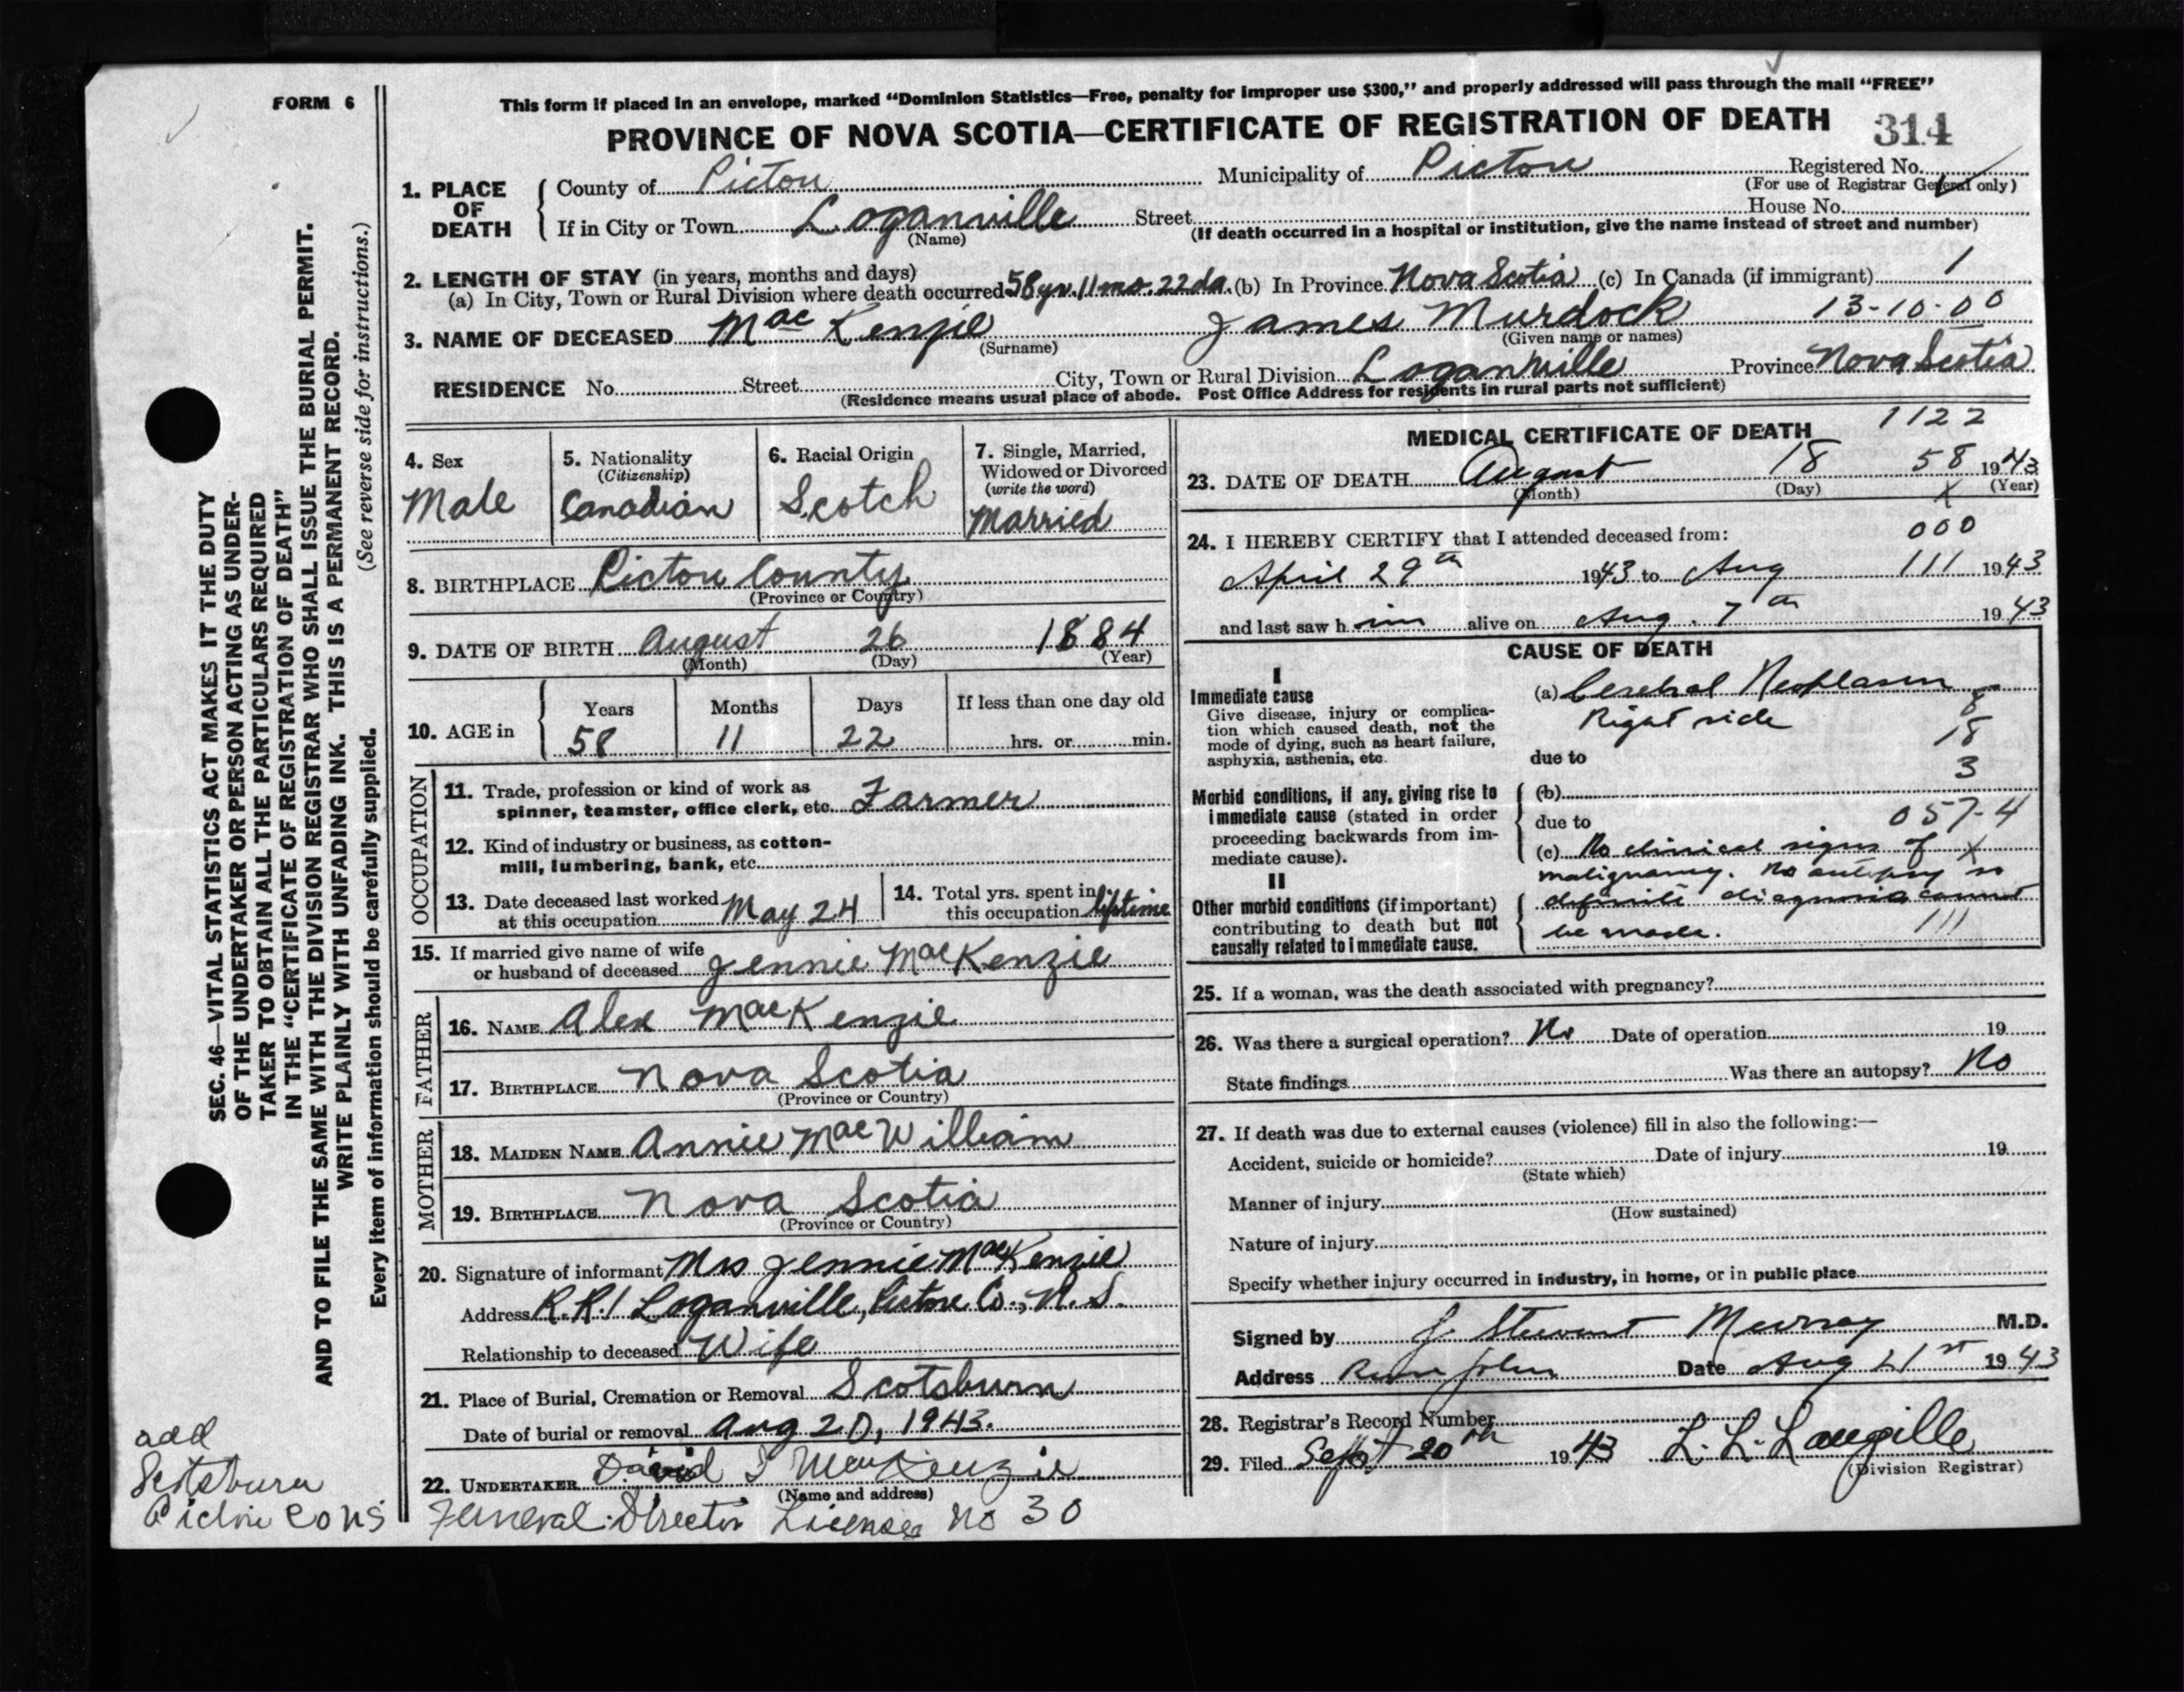 FORM 6
This form if placed in an envelope, marked "Dominion Statistics—Free, penalty for improper use $300," and properly addressed will pass through the mail "FREE"
PROVINCE OF NOVA SCOTIA—CERTIFICATE OF REGISTRATION OF DEATH 314
1. PLACE OF DEATH
County of Pictou Municipality of Pictou Registered No.
(For use of Registrar General only)
If in City or Town Loganville Street House No.
(Name) (If death occurred in a hospital or institution, give the name instead of street and number)
2. LENGTH OF STAY (in years, months and days)
(a) In City, Town or Rural Division where death occurred 58 yr. 11 mo. 22 da. (b) In Province Nova Scotia (c) In Canada (if immigrant) 1
3. NAME OF DECEASED MacKenzie James Murdock 13-10-00
(Surname) (Given name or names)
RESIDENCE No. Street City, Town or Rural Division Loganville Province Nova Scotia
(Residence means usual place of abode. Post Office Address for residents in rural parts not sufficient)
4. Sex
Male
5. Nationality
(Citizenship)
Canadian
6. Racial Origin
Scotch
7. Single, Married,
Widowed or Divorced
(write the word)
Married
8. BIRTHPLACE Pictou County
(Province or Country)
9. DATE OF BIRTH August 26 1884
(Month) (Day) (Year)
10. AGE in
Years Months Days If less than one day old
58 11 22 hrs. or min.
OCCUPATION
11. Trade, profession or kind of work as
spinner, teamster, office clerk, etc. Farmer
12. Kind of industry or business, as cotton-
mill, lumbering, bank, etc.
13. Date deceased last worked
at this occupation May 24
14. Total yrs. spent in
this occupation lifetime
15. If married give name of wife
or husband of deceased Jennie MacKenzie
FATHER
16. NAME Alex MacKenzie
17. BIRTHPLACE Nova Scotia
(Province or Country)
MOTHER
18. MAIDEN NAME Annie MacWilliam
19. BIRTHPLACE Nova Scotia
(Province or Country)
20. Signature of informant Mrs Jennie MacKenzie
Address R.R.1 Loganville, Pictou Co., N.S.
Relationship to deceased Wife
21. Place of Burial, Cremation or Removal Scotsburn
Date of burial or removal Aug 20, 1943.
22. UNDERTAKER David MacKenzie
(Name and address)
Funeral Director License No 30
MEDICAL CERTIFICATE OF DEATH 1122
23. DATE OF DEATH August 18 58 1943
(Month) (Day) X (Year)
24. I HEREBY CERTIFY that I attended deceased from: 000
April 29th 1943 to Aug 111 1943
and last saw him alive on Aug. 7th 1943
CAUSE OF DEATH
I
Immediate cause
Give disease, injury or complica-
tion which caused death, not the
mode of dying, such as heart failure,
asphyxia, asthenia, etc.
(a) Cerebral Neoplasm
Right side
8
18
due to
3
Morbid conditions, if any, giving rise to
immediate cause (stated in order
proceeding backwards from im-
mediate cause).
(b)
due to 057-4
(c) No clinical signs of X
malignancy. No autopsy so
II
Other morbid conditions (if important)
contributing to death but not
causally related to immediate cause.
definite diagnosis cannot
be made. 111
25. If a woman, was the death associated with pregnancy?
26. Was there a surgical operation? No Date of operation 19
State findings Was there an autopsy? No
27. If death was due to external causes (violence) fill in also the following:—
Accident, suicide or homicide? Date of injury 19
(State which)
Manner of injury
(How sustained)
Nature of injury
Specify whether injury occurred in industry, in home, or in public place
Signed by J. Stewart Murray M.D.
Address River John Date Aug 21st 1943
28. Registrar's Record Number
29. Filed Sept 20th 1943 L. L. Langille
(Division Registrar)
SEC. 46—VITAL STATISTICS ACT MAKES IT THE DUTY
OF THE UNDERTAKER OR PERSON ACTING AS UNDER-
TAKER TO OBTAIN ALL THE PARTICULARS REQUIRED
IN THE "CERTIFICATE OF REGISTRATION OF DEATH"
AND TO FILE THE SAME WITH THE DIVISION REGISTRAR WHO SHALL ISSUE THE BURIAL PERMIT.
WRITE PLAINLY WITH UNFADING INK. THIS IS A PERMANENT RECORD.
Every item of information should be carefully supplied. (See reverse side for instructions.)
add
Scotsburn
Pictou Co NS